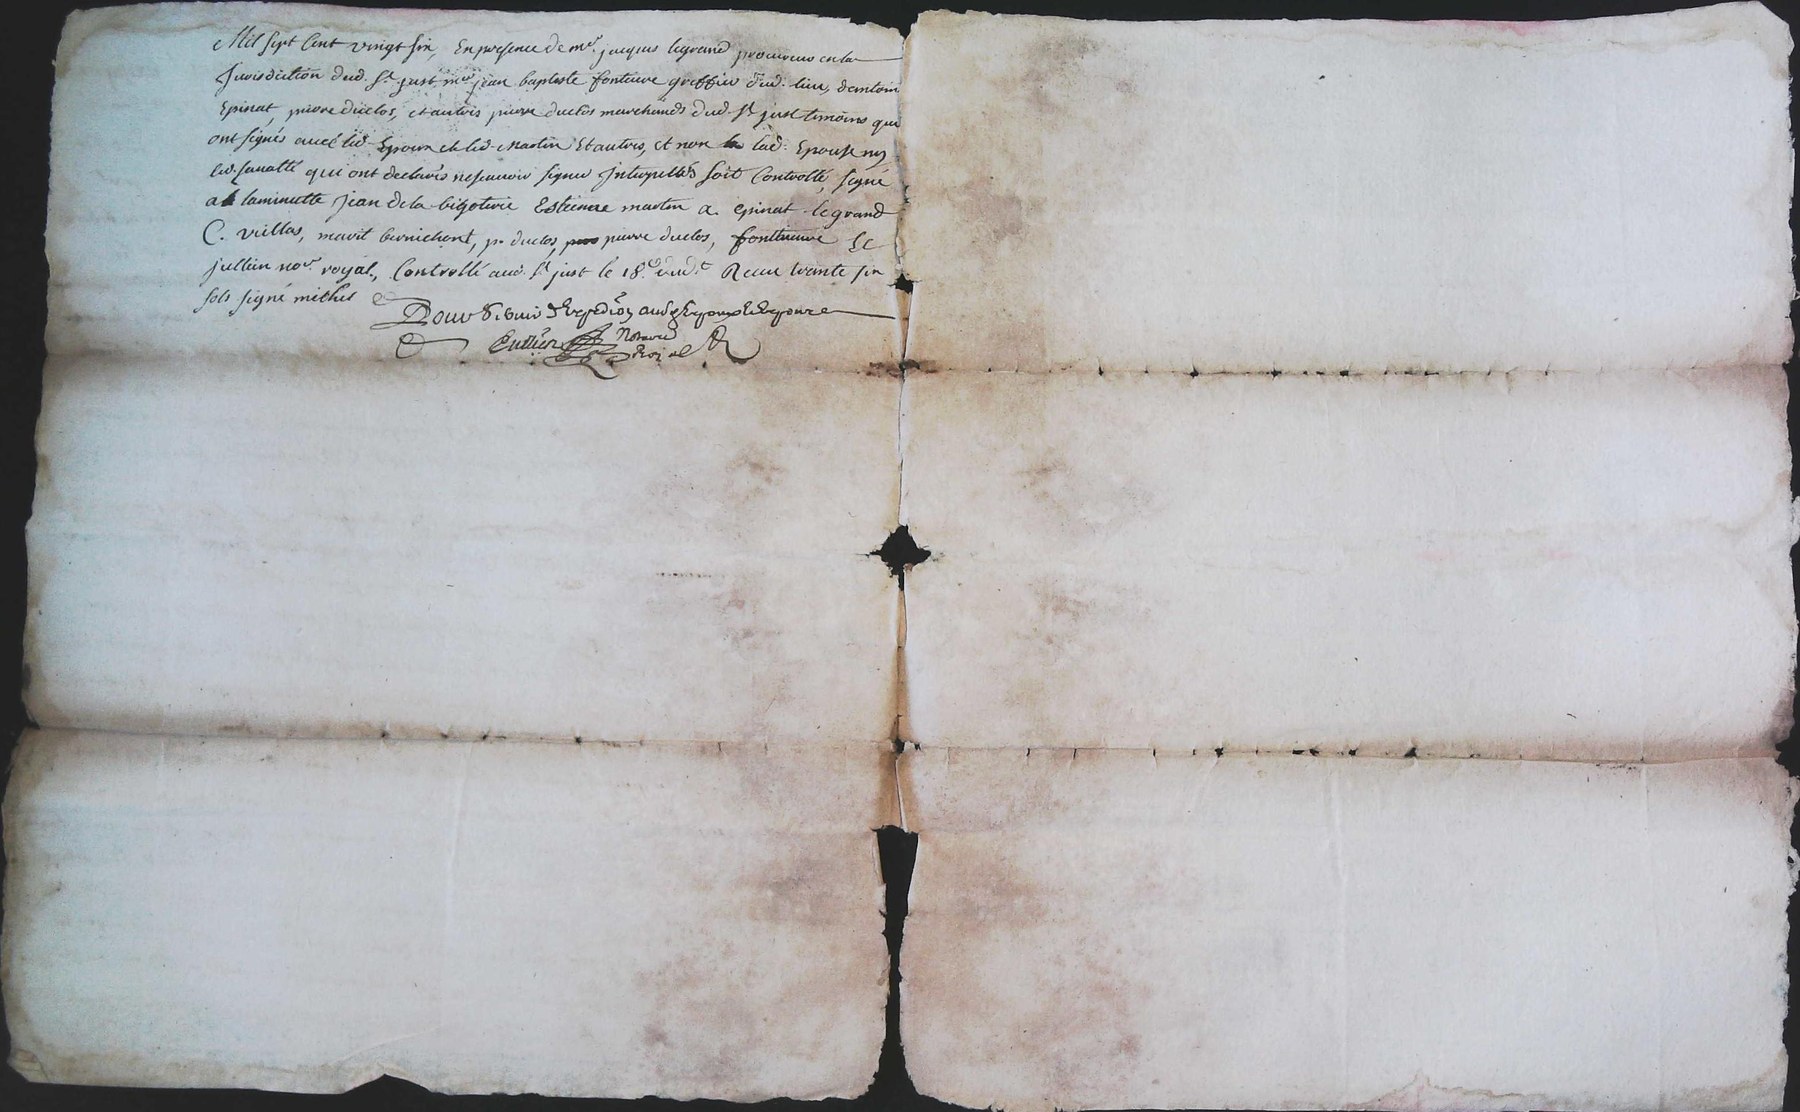 Mil sept cent vingt six, En presence de mr. jacques legrand procureur en la
Jurisdiction dud. st. just, mre jean baptiste fonteuve greffier dud. lieu, dantoine
Epinat, pierre duclos, et autres pierre duclos marchands dud. st just temoins qui
ont signés avec led. Epoux et led. Martin Et autres, et non lad. Epouse ny
led. qui ont declarés nescavoir signer Interpellés soit Controllé, signé
a laminutte jean dela bigoterie Estienne martin a. epinat legrand
C. mavit bernichont, p. duclos, pierre duclos, fontteneuve Et
jullien nore. royal, Controllé aud. st just le 18e. dud.t Receu trente six
sols signé michel
Pour
Notaire
Roial